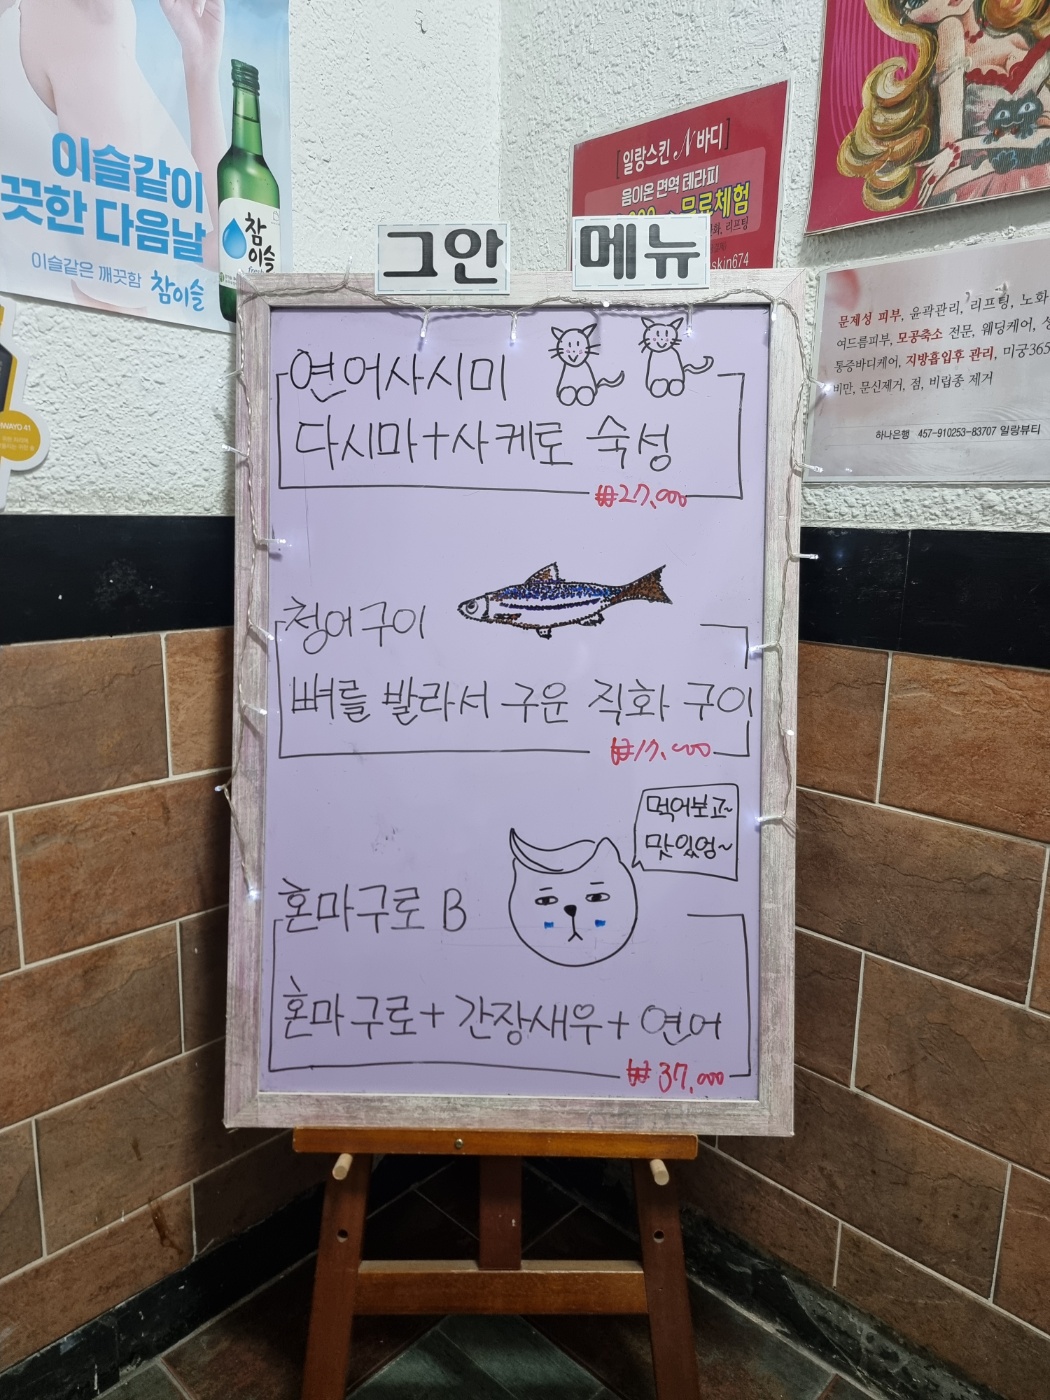 이슬같이
끗한 다음날
이슬같은 깨끗함 참이슬
참
이슬
fresh
[일랑스킨 N 바디]
음이온 면역 테라피
무료체험
리프팅
skin674
문제성 피부, 윤곽관리, 리프팅, 노화
여드름피부, 모공축소 전문, 웨딩케어,
통증바디케어, 지방흡입후 관리, 미궁365
비만, 문신제거, 점, 비립종 제거
하나은행 457-910253-83707 일랑뷰티
그안 메뉴
연어사시미
다시마+사케로 숙성
₩27,000
청어구이
뼈를 발라서 구운 직화 구이
₩17,000
먹어보고~
맛있엉~
혼마구로 B
혼마구로+ 간장새우+ 연어
₩37,000